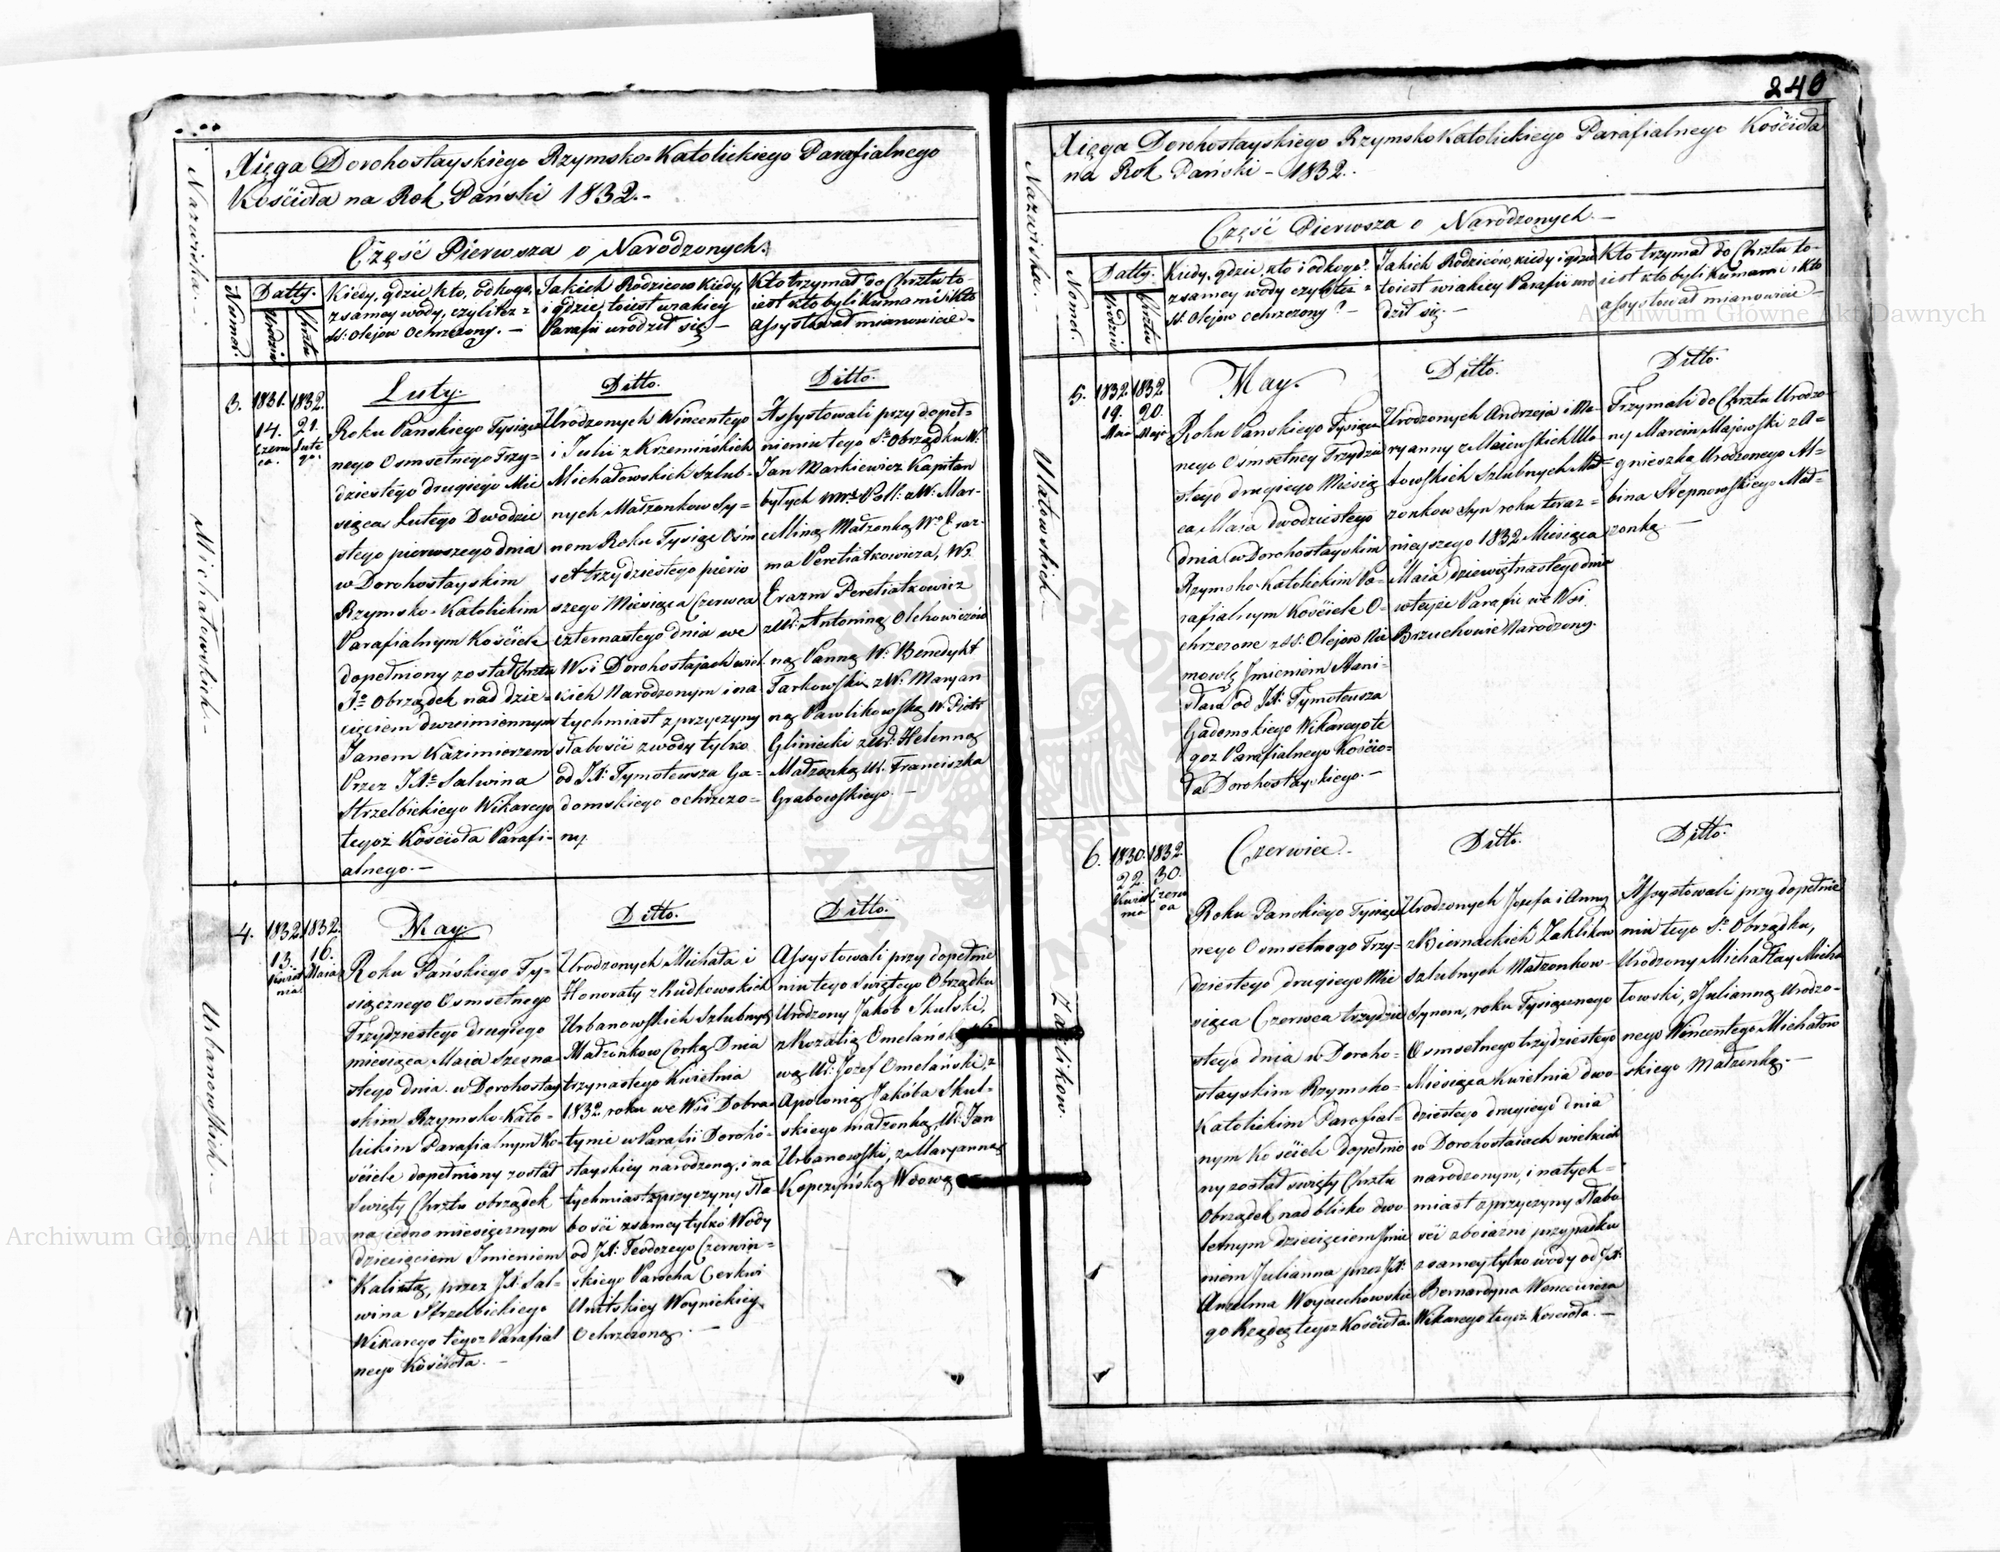 240
Xięga Dorohostayskiego Rzymsko-Katolickiego Parafialnego
Kościoła na Rok Pański 1832.-
Część Pierwsza o Narodzonych.
Nazwiska.-
Numer.
Datty.
Urodzin
Chrztu
Kiedy, gdzie, kto, od kogo,
z samey wody, czyli też z
SS: Olejów Ochrzczony.-
Jakich Rodziców Kiedy,
i gdzie, to iest w iakiey
Parafii urodził się.-
Kto trzymał do Chrztu to
iest kto byli Kumami i kto
Assystował mianowicie.-
Michałowskich.-
3.
1831.
14.
Czerw
ca.
1832.
21.
Lute
go.
Luty.
Roku Panskiego Tysiącz
nego Osmsetnego Trzy-
dziestego drugiego Mie
siąca Lutego Dwudzie
stego pierwszego dnia
w Dorohostayskim
Rzymsko-Katolickim
Parafialnym Kościele
dopełniony został Chrztu
So Obrządek nad dzie-
cięciem dwuimiennym
Janem Kazimierzem
Przez JX: Salwina
Strzelbickiego Wikarego
tegoż Kościoła Parafi-
alnego.-
Ditto.
Urodzonych Wincentego
i Julii z Krzemińskich
Michałowskich Szlub-
nych Małżonkow Sy-
nem Roku Tysiąc Ośm
set trzydziestego pierw
szego Miesiąca Czerwca
czternastego dnia we
Wsi Dorohostajach wiel
kich Narodzonym i na
tychmiast z przyczyny
słabości z wody tylko
od JX: Tymoteusza Ga-
domskiego ochrzczo-
ny.
Ditto.
Assystowali przy dopeł-
nieniu tego So Obrządku W:
Jan Markiewicz Kapitan
byłych Woysk Poll: z W: Mar-
cellina Małżonką Wo Eraz-
ma Peretiatkowicza, W:
Erazm Peretiatkowicz
z W: Antoniną Olchowiczów
ną Panną W: Benedykt
Tarkowski z W: Maryan
ną Pawlikowską W: Piotr
Gliniecki z W: Helenną
Małżonką W: Franciszka
Grabowskiego.-
Urbanowskich.-
4.
1832.
13.
Kwiet
nia
1832.
16.
Maia
May.
Roku Pańskiego Ty-
siącznego Osmsetnego
Trzydziestego drugiego
miesiąca Maia Szesna
stego dnia w Dorohostay
skim Rzymsko-Kato-
lickim Parafialnym Ko-
ściele dopełniony został
Swięty Chrztu obrządek
na iedno miesięcznym
dziecięciem Imieniem
Kalixta, przez JX: Sal-
wina Strzelbickiego
Wikarego tegoż Parafial
nego Kościoła.-
Ditto.
Urodzonych Michała i
Honoraty z Rudkowskich
Urbanowskich Szlubnych
Małżonkow Corką Dnia
trzynastego Kwietnia
1832 roku we Wsi Dobra
tynie w Parafii Doroho-
stayskiey narodzoną, i na
tychmiast z przyczyny sła-
bości z samey tylko Wody
od JX: Teodozego Czerwin-
skiego Parocha Cerkwi
Unitskiey Woynickiey
Ochrzczoną.-
Ditto.
Assystowali przy dopełnie
niu tego Swiętego Obrządku
Urodzony Jakob Skulski,
z Rozalią Omelańsk
wą Ur: Jozef Omelański, z
Apolonią Jakóba Skul-
skiego małżonką, Ur: Jan
Urbanowski, z Maryanną
Kopczyńską Wdową
Xięga Dorohostayskiego Rzymsko Katolickiego Parafialnego Kościoła
na Rok Pański - 1832.-
Część Pierwsza o Narodzonych.-
Nazwiska.-
Numer.
Datty.
Urodzin
Chrztu
Kiedy, gdzie, kto i od kogo?
z samey wody czyli też z
SS: Olejow ochrzczony?-
Jakich Rodziców, kiedy i gdzie
to iest w iakiey Parafii uro
dził się.-
Kto trzymał do Chrztu to-
iest kto byli Kumami i kto
assystował mianowicie-
Ułatowskich.-
5.
1832.
19.
Maia
1832.
20.
Maja
May.
Roku Panskiego Tysiącz
nego Osmsetney Trzydzie
stego drugiego Miesią
ca Maia dwudziestego
dnia w Dorohostayskim
Rzymsko-Katolickim Pa-
rafialnym Kościele O-
chrzczone z SS: Olejow Nie
mowlę Jmieniem Stani-
sław od JX: Tymoteusza
Gadomskiego Wikarego te
goż Parafialnego Kościo-
ła Dorohostayskiego.-
Ditto.
Urodzonych Andrzeja i Ma-
ryanny z Maiewskich Uła
towskich Szlubnych Mał-
żonkow Syn roku teraz-
nieyszego 1832 Miesiąca
Maia dziewiętnastego dnia
w teyże Parafii we Wsi
Brzuchowie Narodzony.
Ditto.
Trzymali do Chrztu Urodzo-
ny Marcin Majewski z A-
gnieszką Urodzonego Al-
bina Stepnowskiego Mał-
żonką.-
Zaklikow.
6.
1830.
22.
Kwiet
nia
1832.
30.
Czerw
ca
Czerwiec.-
Roku Panskiego Tysiącz
nego Osmsetnego Trzy-
dziestego drugiego Mie
siąca Czerwca trzydzie
stego dnia w Doroho-
stayskim Rzymsko-
Katolickim Parafial-
nym Kościele Dopełnio
ny został swięty Chrztu
Obrządek nad blisko dwo
letnym dziecięciem Jmie
niem Julianna przez JX:
Anzelma Woyciechowskie
go Rządcę tegoż Kościoła
Ditto.
Urodzonych Jozefa i Anny
z Biernackich Zaklikow
Szlubnych Małżonkow-
Synem, roku Tysiącznego
Osmsetnego trzydziestego
Miesiąca Kwietnia dwu-
dziestego drugiego dnia
w Dorohostaiach wielkich
narodzonym, i natych-
miast z przyczyny słabo
ści z boiaźni przypadku
z samey tylko wody od JX:
Bernardyna
Wikarego tegoż Kościoła.-
Ditto.
Assystowali przy dopełnie
niu tego So Obrządku,
Urodzony Michał Micha
łowski, z Julianną Urodzo-
nego Wincentego Michałow
skiego Małżonką.-
Archiwum Główne Akt Dawnych
Archiwum Główne Akt Dawnych